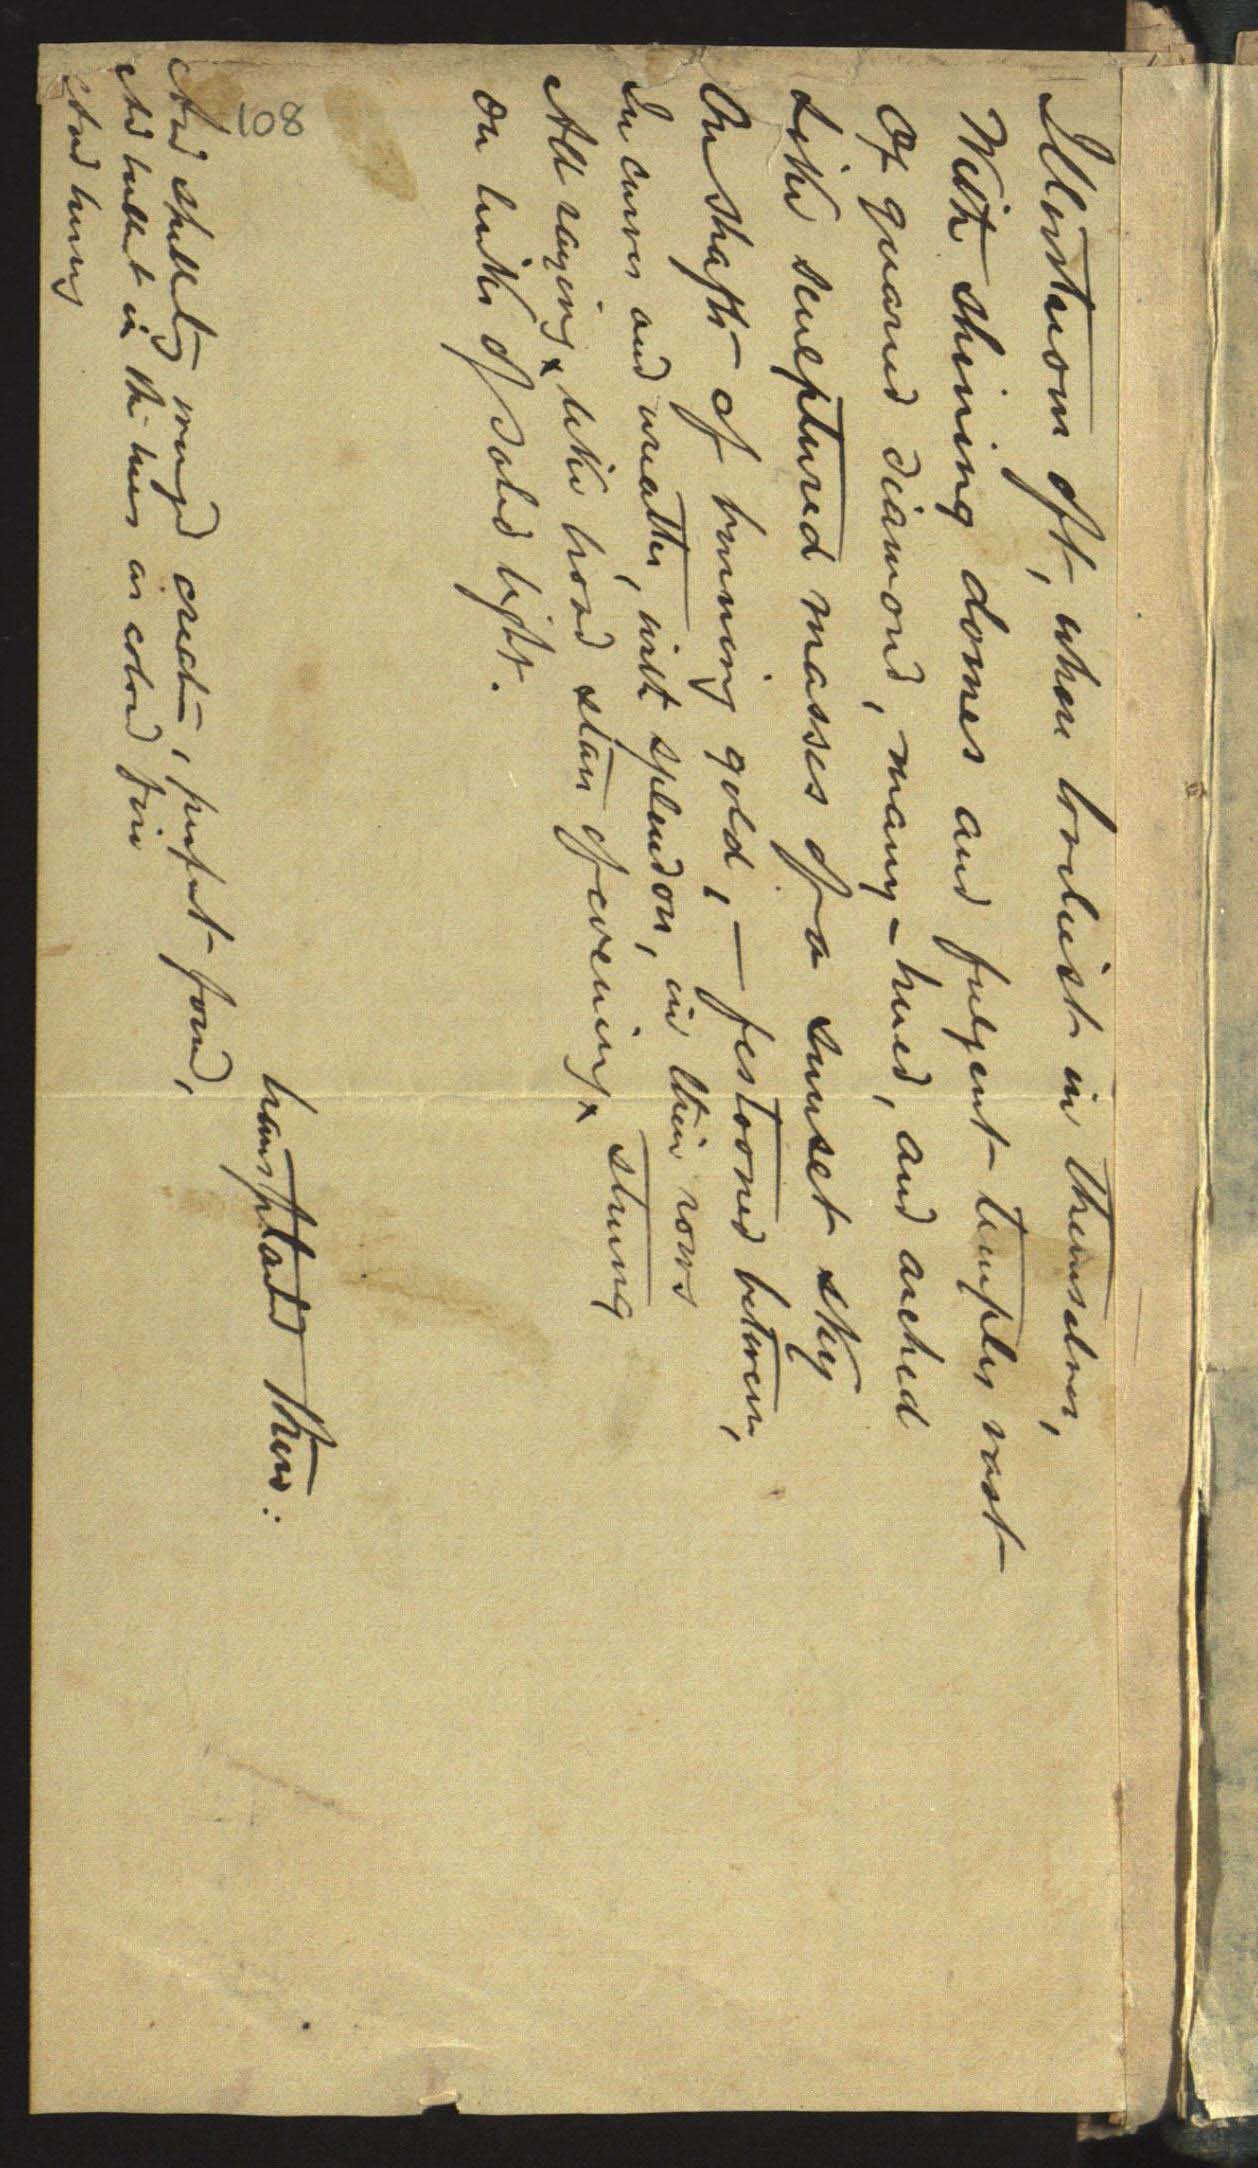 Illustrious oft, when loveliest in themselves,
With shining domes and fulgent temples vast
Of quarried diamond, many-hued, and arched
Like sculptured masses of a sunset sky
On shafts of burning gold, — festooned between,
In curves and wreathes, with splendor, in their rows
All raying x like broad stars of evening x strung
On links of solid light.
transplanted thus:
And
in the hues as colored fire
And
108